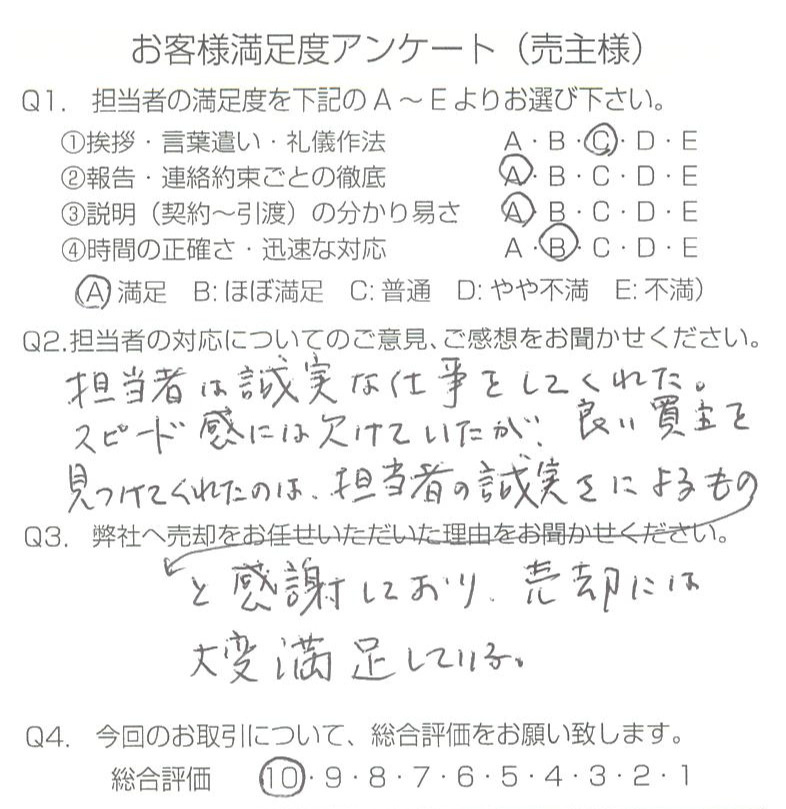 お客様満足度アンケート（売主様）
Q1. 担当者の満足度を下記のA～Eよりお選び下さい。
①挨拶・言葉遣い・礼儀作法 A・B・C・D・E
②報告・連絡約束ごとの徹底 A・B・C・D・E
③説明（契約～引渡）の分かり易さ A・B・C・D・E
④時間の正確さ・迅速な対応 A・B・C・D・E
A 満足 B:ほぼ満足 C:普通 D:やや不満 E:不満）
Q2.担当者の対応についてのご意見、ご感想をお聞かせください。
担当者は誠実な仕事をしてくれた。
スピード感には欠けていたが、良い買主を
見つけてくれたのは、担当者の誠実さによるもの
Q3. 弊社へ売却をお任せいただいた理由をお聞かせください。
と感謝しており、売却には
大変満足している。
Q4. 今回のお取引について、総合評価をお願い致します。
総合評価 10・9・8・7・6・5・4・3・2・1